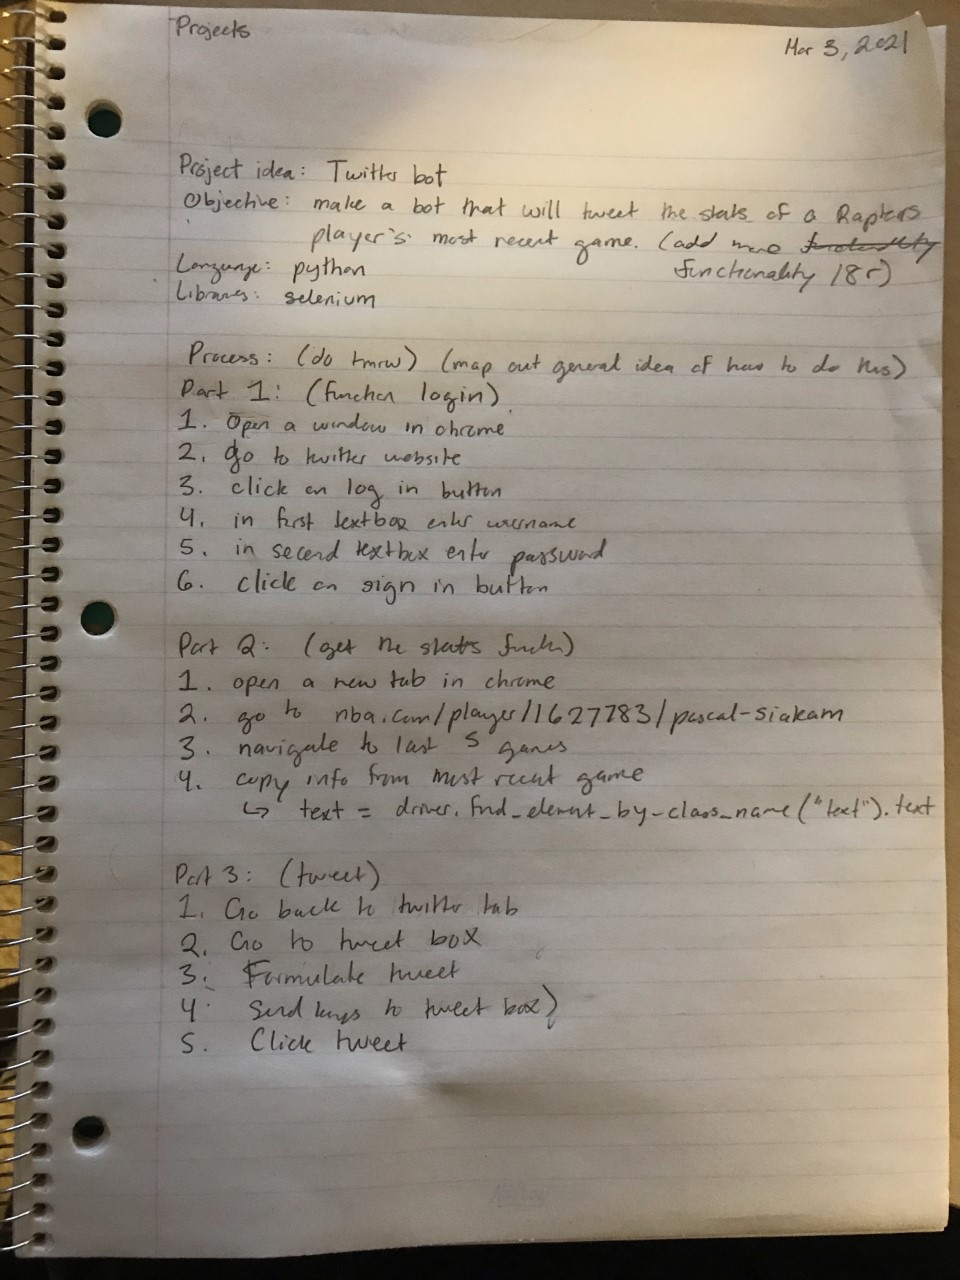 Projects
Mar 3, 2021
Project idea: Twitter bot
Objective: make a bot that will tweet the stats of a Raptors
player's most recent game. (add more functionality
functionality l8r)
Language: python
Libraries: selenium
Process: (do tmrw) (map out general idea of how to do this)
Part 1: (function login)
1. Open a window in chrome
2. go to twitter website
3. click on log in button
4. in first textbox enter username
5. in second textbox enter password
6. click on sign in button
Part 2: (get the stats func)
1. open a new tab in chrome
2. go to nba.com/player/1627783/pascal-siakam
3. navigate to last 5 games
4. copy info from most recent game
↳ text = driver.find_element_by_class_name("text").text
Part 3: (tweet)
1. Go back to twitter tab
2. Go to tweet box
3. Formulate tweet
4. Send keys to tweet box)
5. Click tweet